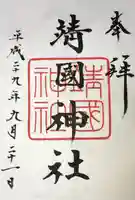 奉拝
靖國神社
平成二十九年九月二十一日